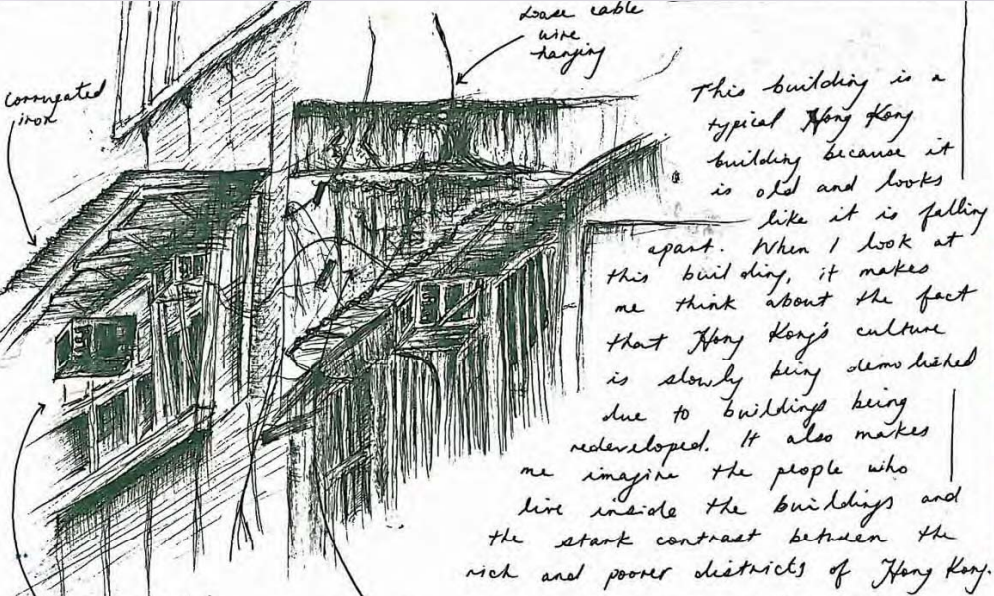 Loose cable
wire
hanging
corrugated
iron
This building is a
typical Hong Kong
building because it
is old and looks
like it is falling
apart. When I look at
this building, it makes
me think about the fact
that Hong Kong's culture
is slowly being demolished
due to buildings being
redeveloped. It also makes
me imagine the people who
live inside the buildings and
the stark contrast between the
rich and poorer districts of Hong Kong.